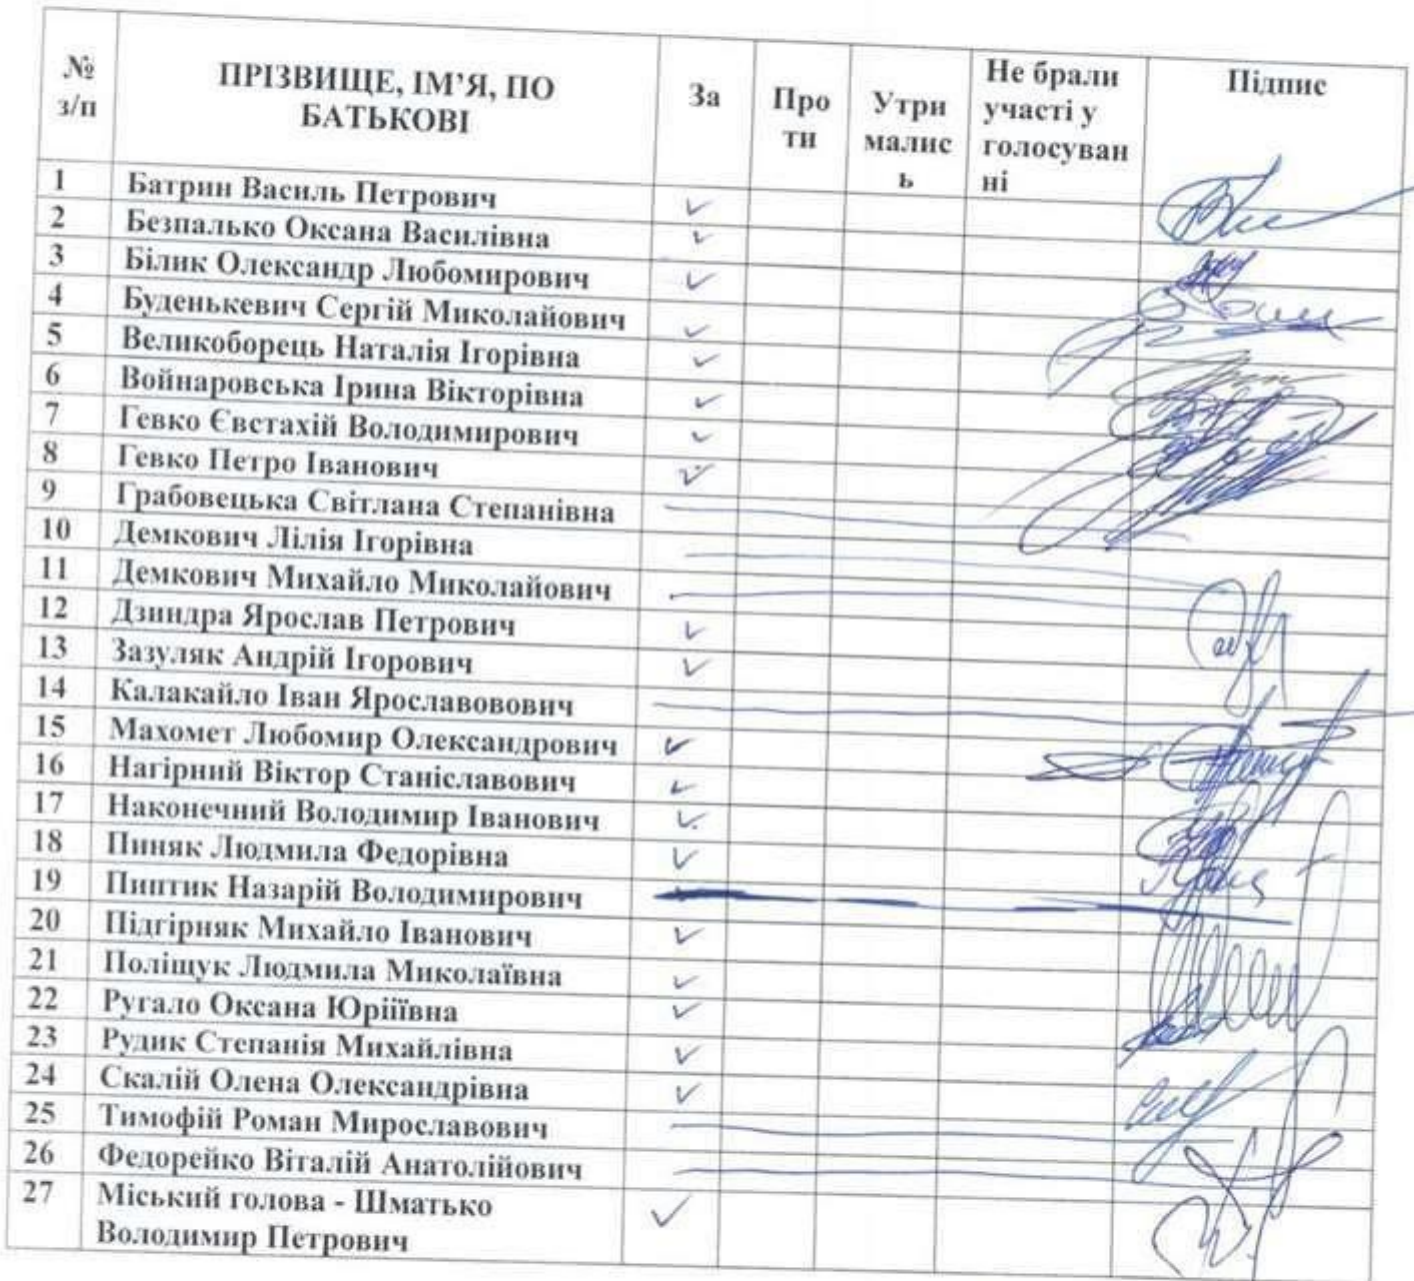 № з/п
ПРІЗВИЩЕ, ІМ’Я, ПО БАТЬКОВІ
За
Про
ти
Утри
малис
ь
Не брали
участі у
голосуван
ні
Підпис
1 Батрин Василь Петрович
2 Безпалько Оксана Василівна
3 Білик Олександр Любомирович
4 Буденькевич Сергій Миколайович
5 Великоборець Наталія Ігорівна
6 Войнаровська Ірина Вікторівна
7 Гевко Євстахій Володимирович
8 Гевко Петро Іванович
9 Грабовецька Світлана Степанівна
10 Демкович Лілія Ігорівна
11 Демкович Михайло Миколайович
12 Дзиндра Ярослав Петрович
13 Зазуляк Андрій Ігорович
14 Калакайло Іван Ярославовович
15 Махомет Любомир Олександрович
16 Нагірний Віктор Станіславович
17 Наконечний Володимир Іванович
18 Пиняк Людмила Федорівна
19 Пиптик Назарій Володимирович
20 Підгірняк Михайло Іванович
21 Поліщук Людмила Миколаївна
22 Ругало Оксана Юріїївна
23 Рудик Степанія Михайлівна
24 Скалій Олена Олександрівна
25 Тимофій Роман Мирославович
26 Федорейко Віталій Анатолійович
27 Міський голова - Шматько
Володимир Петрович